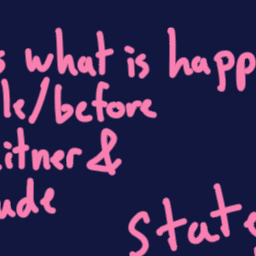 s what is happ
le/before
itner &
ude
State